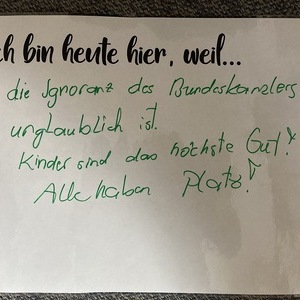 ch bin heute hier, weil...
die Ignoranz des Bundeskanzlers
unglaublich ist.
Kinder sind das höchste Gut!
Alle haben Platz!